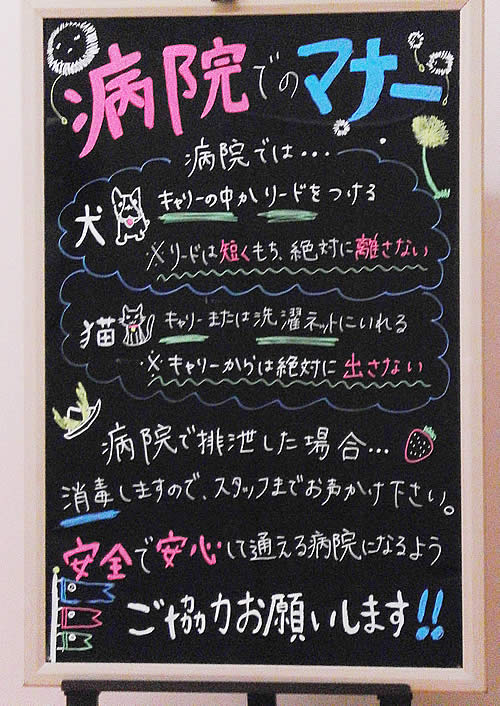 病院でのマナー
病院では・・・
犬 キャリーの中か リードをつける
※リードは短くもち、絶対に離さない
猫 キャリーまたは洗濯ネットにいれる
※キャリーからは絶対に出さない
病院で排泄した場合・・・
消毒しますので、スタッフまでお声かけ下さい。
安全で安心して通える病院になるよう
ご協力お願いします!!